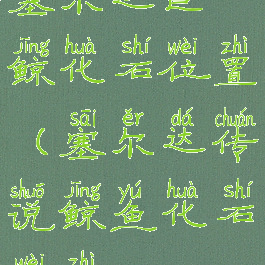 jīng huà shí wèi zhì
鲸化石位置
sāi ěr dá chuán
（塞尔达传
shuō jīng yú huà shí
说鲸鱼化石
wèi zhì